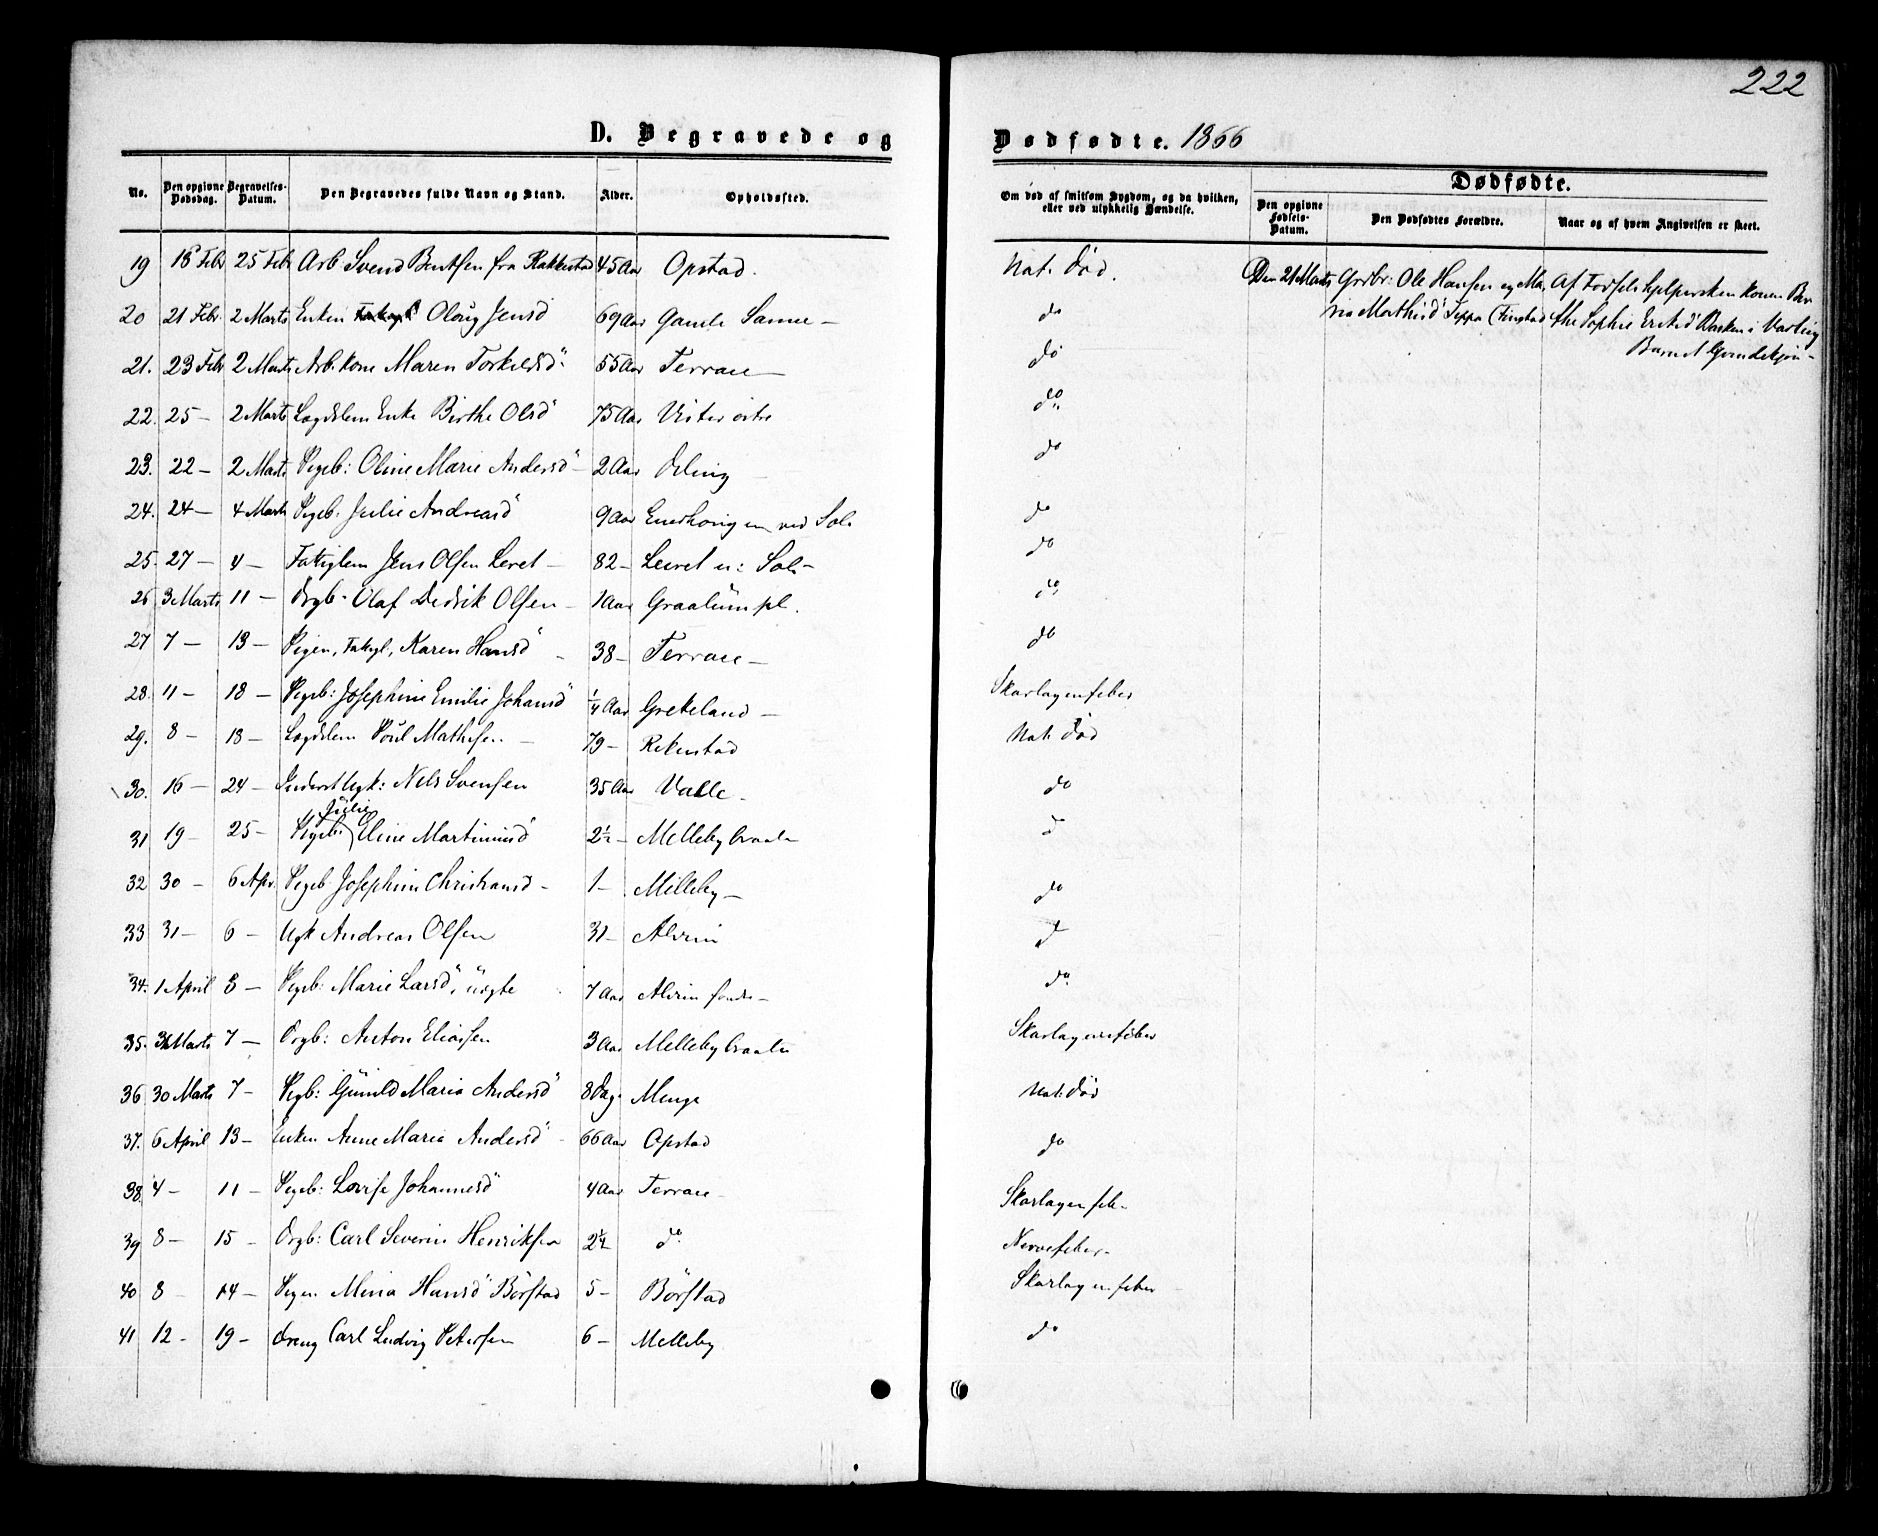 222
D. Begravede og Dødfødte. 1866
No.
Den opgivne Dødsdag.
Begravelses-Datum.
Den Begravedes fulde Navn og Stand.
Alder.
Opholdssted.
Om død af smitsom Sygdom, og da hvilken, eller ved ulykkelig Hændelse.
Dødfødte.
Den opgivne Fødsels-Datum.
Den Dødfødtes Forældre.
Naar og af hvem Angivelsen er skeet.
19 18 Febr 25 Feb Arb Svend Bentsen fra Rakkestad 45 Aar Opstad. Nat. Død.
20 21 Febr. 2 Marts Enken Oloug Jensd 69 Aar Gamle Sanne — do
21. 23 Febr 2 Marts Arb. kone Maren Torkildsd 55 Aar Terrace — do
22. 25 — 2 Marts Lægdslem Enke Birthe Olsd 75 Aar Vister østre do
23. 22 — 2 Marts Pigeb: Oline Marie Andersd — 2 Aar do
24. 24 — 4 Marts Pigeb. Julie Andreasd 9 Aar ved Sol. do
25. 27 — 4 — Fattiglem Jens Olsen Leret — 82 — Leeret u: Sol — do
26 3 Marts 11 — Drgb. Olaf Dedrik Olsen — 1 Aar Graalum pl. do
27 7 — 18 — Pigen, Fattigl, Karen Hansd — 38 — Terrace — do
28. 11 — 18 — Pigeb: Josephine Emilie Johansd ¼ Aar Greteland — Skarlagensfeber
29. 8 — 18 — Lægdslem Poul Mathisen — 79 — Rekustad Nat. Død
30. 16 — 24 — Inderst Ugk: Nels Svensen 35 Aar Valle — do
31 19 — 25 — Pigeb: Julie Eline Martinusd 2½ — Melleby braate d
32 30 — 6 Apr. Pigeb Josephine Christiansd — 1 — Milleby — do
33 31 — 6 — Ugk Andreas Olsen 31 — Alvim d
34. 1 April 8 — Pigeb: Marie Larsd, uægte 7 Aar Alvim søndre — do.
35. 31 Marts 7 — Drgb: Anton Eliasen 3 Aar Melleby braate Skarlagensfeber
36 30 Marts 7 — Pigb: Gunild Maria Andersd 8 Dag. Menge Nat. Død
37. 6 April 13 — Enken Anne Maria Andersd — 66 Aar Opstad do
38. 4 — 11 — Pigeb: Lovise Johannesd 4 Aar Terrace — Skarlagenfeb —
39 8 — 15 — Drgb: Carl Severin Henriksen 2¼ do Nervefeber —
40 8 — 14 — Pigen Mina Hansd Börstad 5 — Börstad Skarlagensfeber
41 12 — 19 — Dreng Carl Ludvig Petersen 6 — Melleby do
Den 21 Marts Grdbr: Ole Hansen og Ma-
ria Mathisd Teppa (Tinstad
Af Fødselshjelpersken Konen Ber-
the Sophie i Varteig